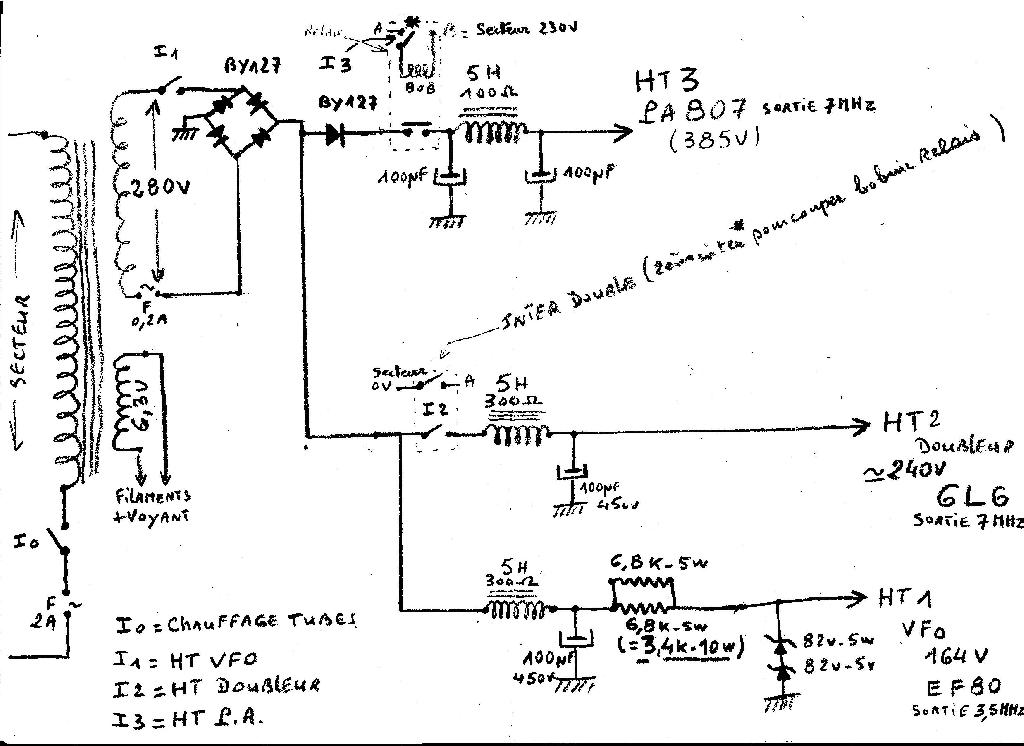 Relais
A
*
B = Secteur 230V
I1
BY127
I3
BOB
5H
100Ω
BY127
HT3
PA 807 SORTIE 7MHz
(385V)
280V
100µF
100µF
F
0,2A
SECTEUR
INTER DOUBLE (
* pour couper bobine Relais )
6,3V
Secteur
0V
A
I2
5H
300Ω
HT2
DOUBLEUR
≃240V
6L6
SORTIE 7MHz
100µF
450V
FILAMENTS
+VOYANT
I0
F
2A
5H
300Ω
6,8K-5W
6,8K-5W
(=3,4K-10W)
100µF
450V
82V-5W
82V-5V
HT1
VFO
164V
EF80
SORTIE 3,5MHz
I0 = CHAUFFAGE TUBES
I1 = HT VFO
I2 = HT DOUBLEUR
I3 = HT P.A.